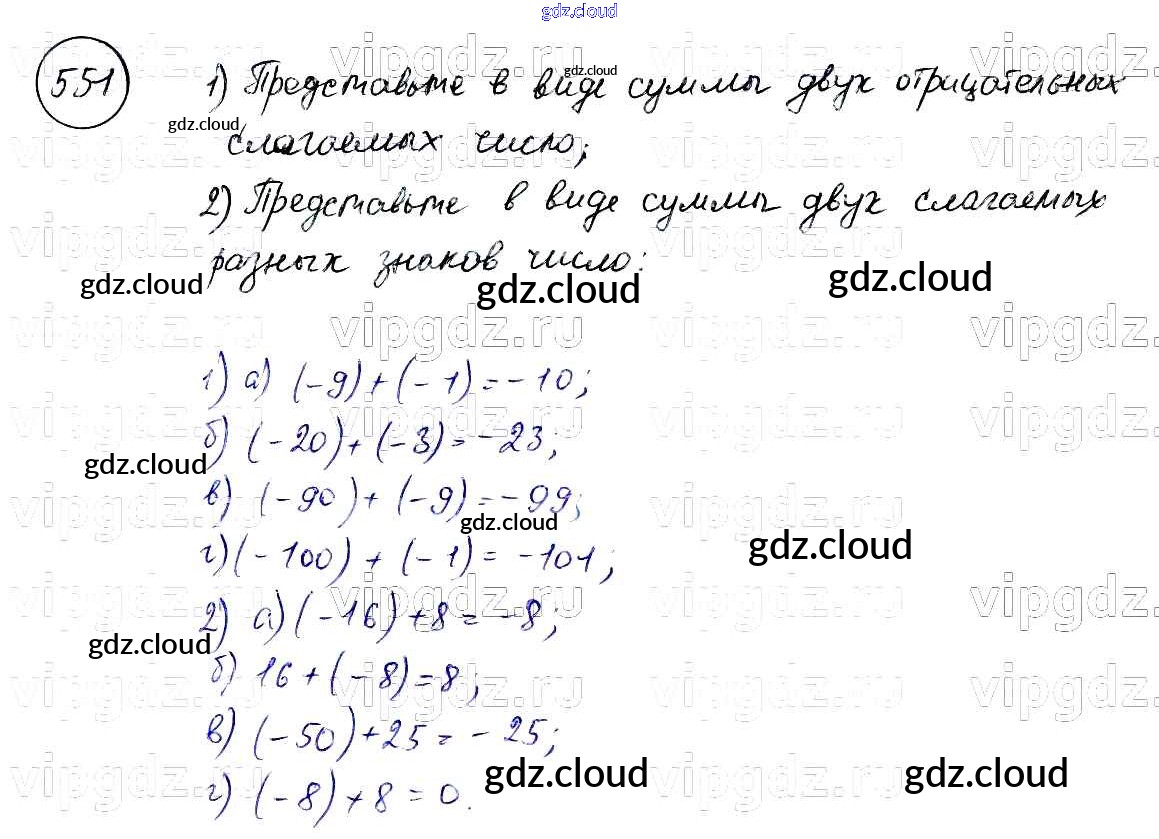 gdz.cloud
551
1) Представьте в виде суммы двух отрицательных
gdz.cloud
gdz.cloud
слагаемых число;
2) Представьте в виде суммы двух слагаемых
разных знаков число:
gdz.cloud
gdz.cloud
gdz.cloud
vipgdz.ru vipgdz.ru vipgdz.ru vipgdz
1) а) (-9)+(-1)=-10;
б) (-20)+(-3)=-23;
gdz.cloud
в) (-90)+(-9)=-99;
gdz.cloud
gdz.cloud
г) (-100)+(-1)=-101;
2) а) (-16)+8=-8;
gdz.cloud
б) 16+(-8)=8;
в) (-50)+25=-25;
gdz.cloud
gdz.cloud
г) (-8)+8=0.